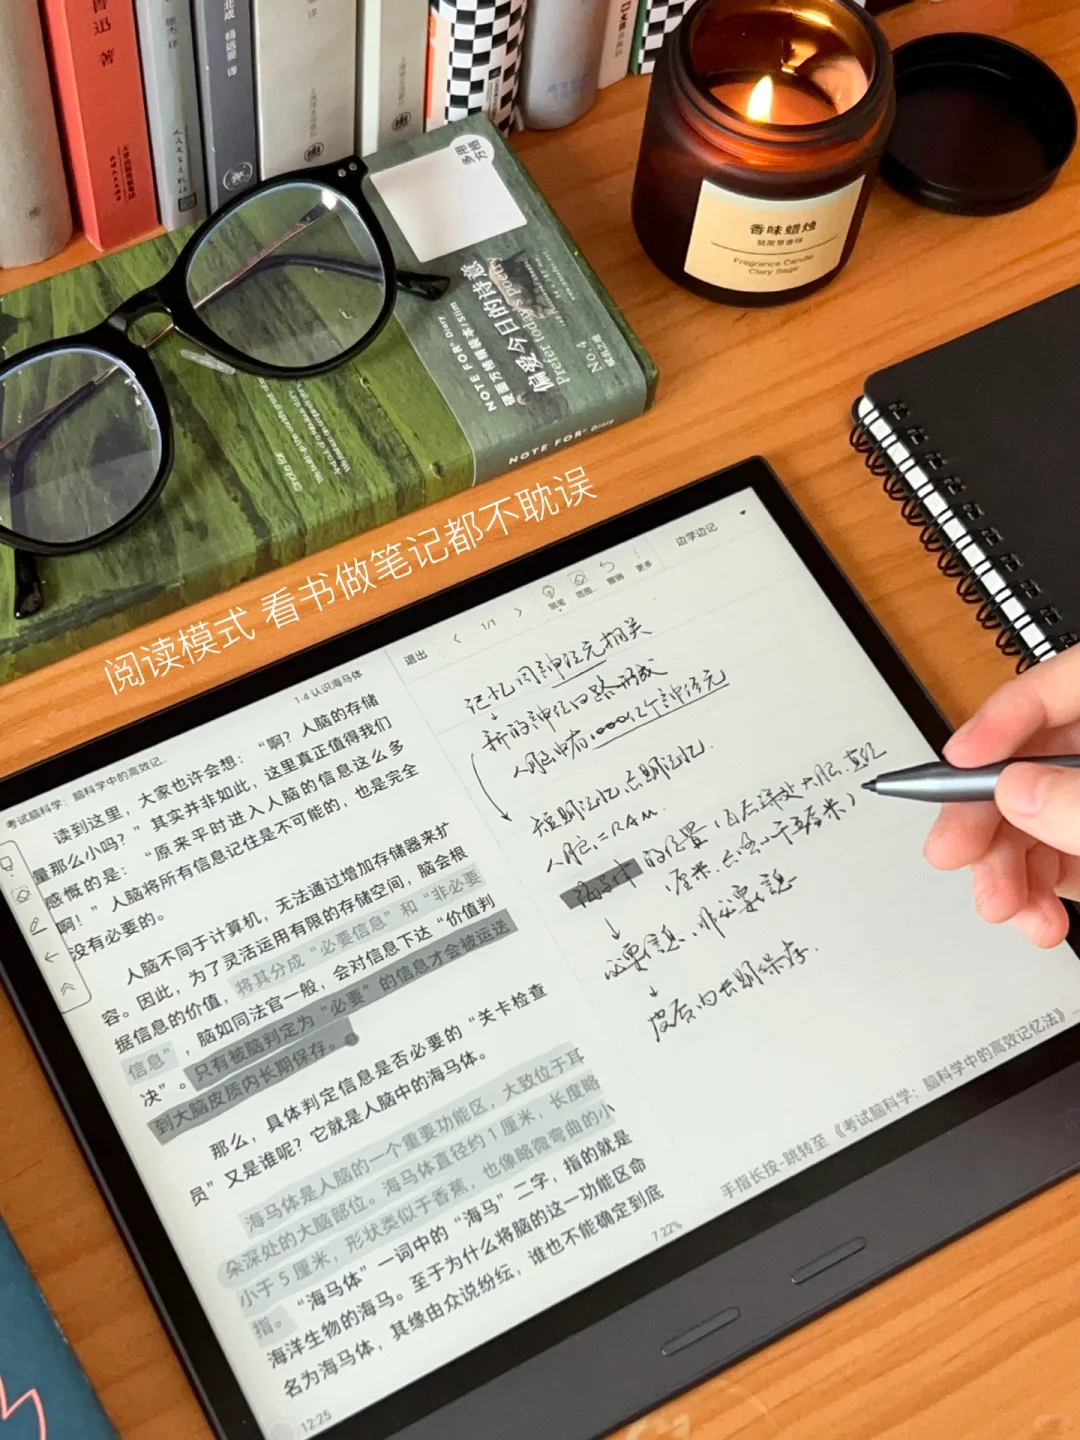 鲁迅 著
香味蜡烛
鼠尾草香味
Fragrance Candle
Clary Sage
偏爱今日的诗意
Prefer today's poetry
NOTE FOR® Diary/Slim
No.4
NOTE FOR® Diary
阅读模式 看书做笔记都不耽误
考试脑科学：脑科学中的高效记...
1-4 认识海马体
读到这里，大家也许会想：“啊？人脑的存储
量那么小吗？”其实并非如此，这里真正值得我们
感慨的是：“原来平时进入人脑的信息这么多
啊！”人脑将所有信息记住是不可能的，也是完全
没有必要的。
人脑不同于计算机，无法通过增加存储器来扩
容。因此，为了灵活运用有限的存储空间，脑会根
据信息的价值，将其分成“必要信息”和“非必要
信息”，脑如同法官一般，会对信息下达“价值判
决”。只有被脑判定为“必要”的信息才会被运送
到大脑皮质内长期保存。
那么，具体判定信息是否必要的“关卡检查
员”又是谁呢？它就是人脑中的海马体。
海马体是人脑的一个重要功能区，大致位于耳
朵深处的大脑部位。海马体直径约 1 厘米，长度略
小于 5 厘米，形状类似于香蕉，也像略微弯曲的小
指。“海马体”一词中的“海马”二字，指的就是
海洋生物的海马。至于为什么将脑的这一功能区命
名为海马体，其缘由众说纷纭，谁也不能确定到底
12:25
7.22%
退出
1/1
钢笔
范围
撤销
更多
边学边记
记忆同神经元相关
新的神经回路形成
人脑中有1000亿个神经元
短期记忆、长期记忆.
人脑=RAM.
海马体的位置（耳朵深处大脑.直径
1厘米.长度小于5厘米）
必要信息、非必要信息
皮质内长期保存.
手指长按-跳转至《考试脑科学：脑科学中的高效记忆法》